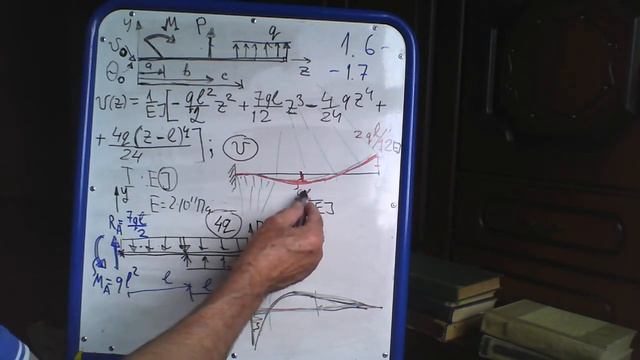 y M P q
v₀ z
θ₀ a b c
1.6 -
- 1.7
v(z) = 1/EJ [ - ql²/2 z² + 7ql/12 z³ - 4/24 q z⁴ +
+ 4q(z-l)⁴/24 ] ; v
2ql⁴/12EJ
y
E = 2·10¹¹ Па
R_A = 7ql/2
4q
M_A = ql² l l